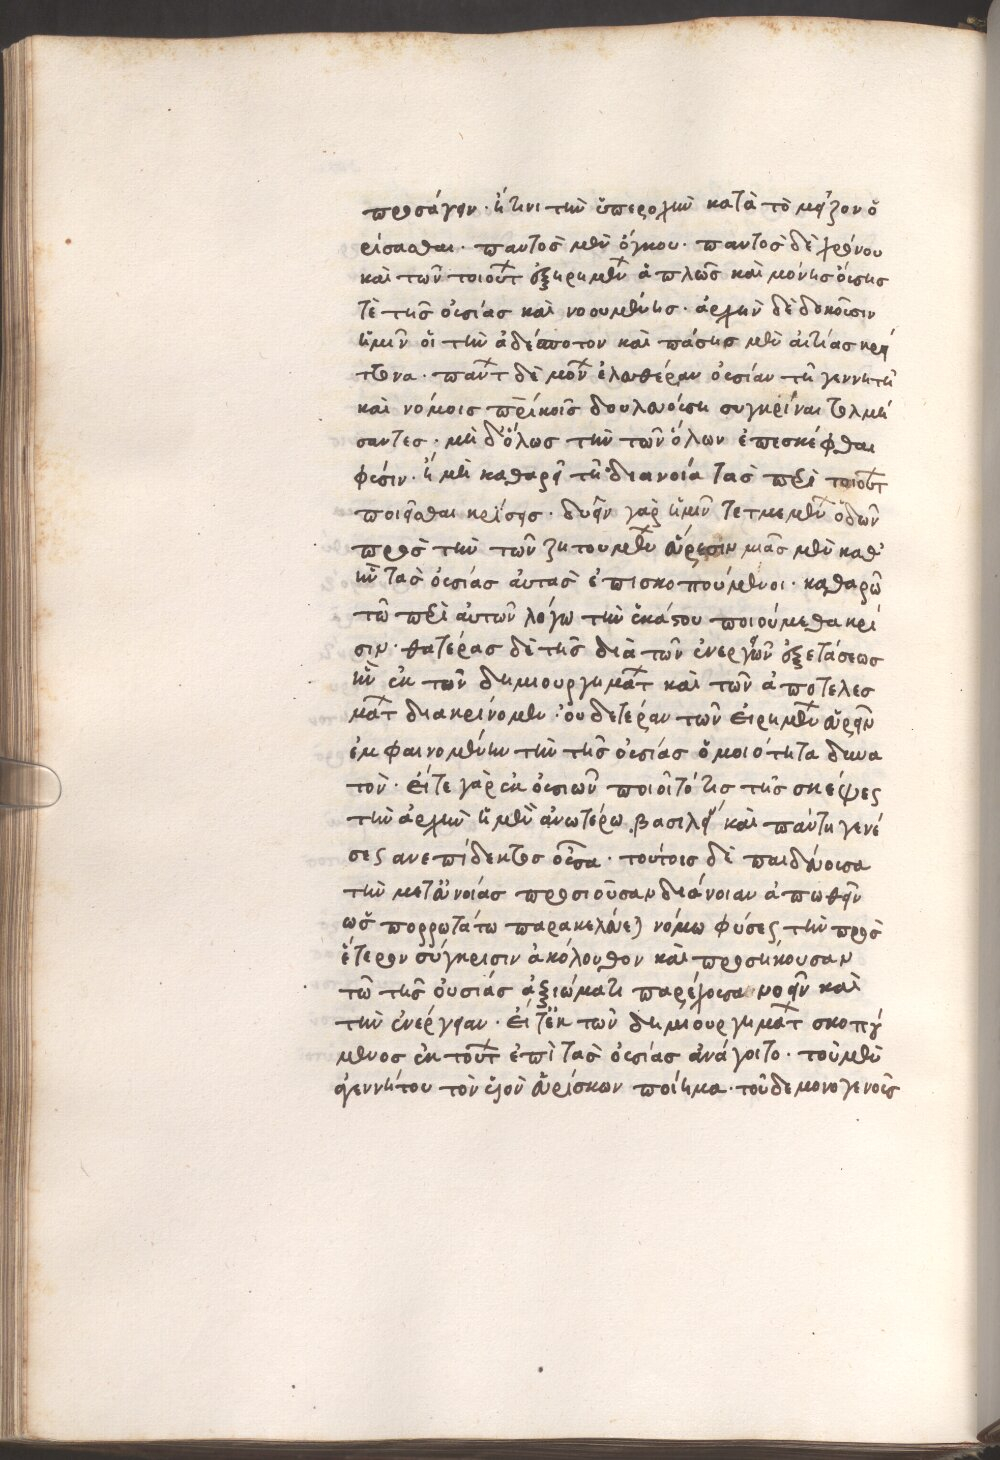 προσάγειν· ἢ τινι τὴν ὑπεροχὴν κατὰ τὸ μεῖζον ὁ
ρίσασθαι· παντὸς μὲν ὄγκου· παντὸς δὲ χρόνου
καὶ τῶν τοιούτ ἐξῃρημέν ἁπλῶς καὶ μόνης οὔσης
τὲ τῆς οὐσίας καὶ νοουμένης· ἀρχὴν δὲ δοκοῦσιν
ἡμῖν οἱ τὴν ἀδέσποτον καὶ πάσης μὲν αἰτίας κρεί
τονα· πάντ δὲ μόν ἐλευθέραν οὐσίαν τῇ γεννητῇ
καὶ νόμοις πρικοῖς δουλευούση συγκρῖναι τολμή
σαντες· μὴ δ' ὅλως τὴν τῶν ὅλων ἐπεσκέφθαι
φύσιν· ἢ μὴ καθαρᾷ τῇ διανοίᾳ τὰς περὶ τοιούτ
ποιεῖσθαι κρίσεις· δυεῖν γὰρ ἡμῖν τετμεμέν ὁδῶν
πρὸς τὴν τῶν ζητουμέν εὕρεσιν μιᾶς μὲν καθ'
ἣν τὰς οὐσίας αὐτὰς ἐπισκοπούμενοι· καθαρῶ
τῶ περὶ αὐτῶν λόγω τὴν ἑκάστου ποιούμεθα κρί
σιν· θατέρας δὲ τῆς διὰ τῶν ἐνεργειῶν ἐξετάσεως
ἣν ἐκ τῶν δημιουργημάτ καὶ τῶν ἀποτελεσ
μάτ διακρίνομεν· οὐδετέραν τῶν εἰρημέν εὑρεῖν
ἐμφαινομένην τὴν τῆς οὐσίας ὁμοιότητα δυνα
τόν· εἴτε γὰρ ἐκ οὐσιῶν ποιοῖτό τις τῆς σκέψεως
τὴν ἀρχὴν ἡ μὲν ἀνωτέρω βασιλείας καὶ πάντη γενέ
σεως ανεπίδεκτος οὖσα· τούτοις δὲ παιδεύουσα
τὴν μετ' εὐνοίας προσιοῦσαν διάνοιαν ἀπωθεῖν
ὡς πορρωτάτω παρακελεύεται νόμω φύσεως τὴν πρὸς
ἕτερον σύγκρισιν ἀκόλουθον καὶ προσήκουσαν
τῶ τῆς οὐσίας ἀξιώματι παρέχουσα νοεῖν καὶ
τὴν ἐνέργειαν· εἴτ' ἐκ τῶν δημιουργημάτ σκοπού
μενος ἐκ τούτ ἐπὶ τὰς οὐσίας ἀνάγοιτο· τοῦ μὲν
ἀγεννήτου τὸν υἱὸν εὑρίσκων ποίημα· τοῦ δὲ μονογενοῦς